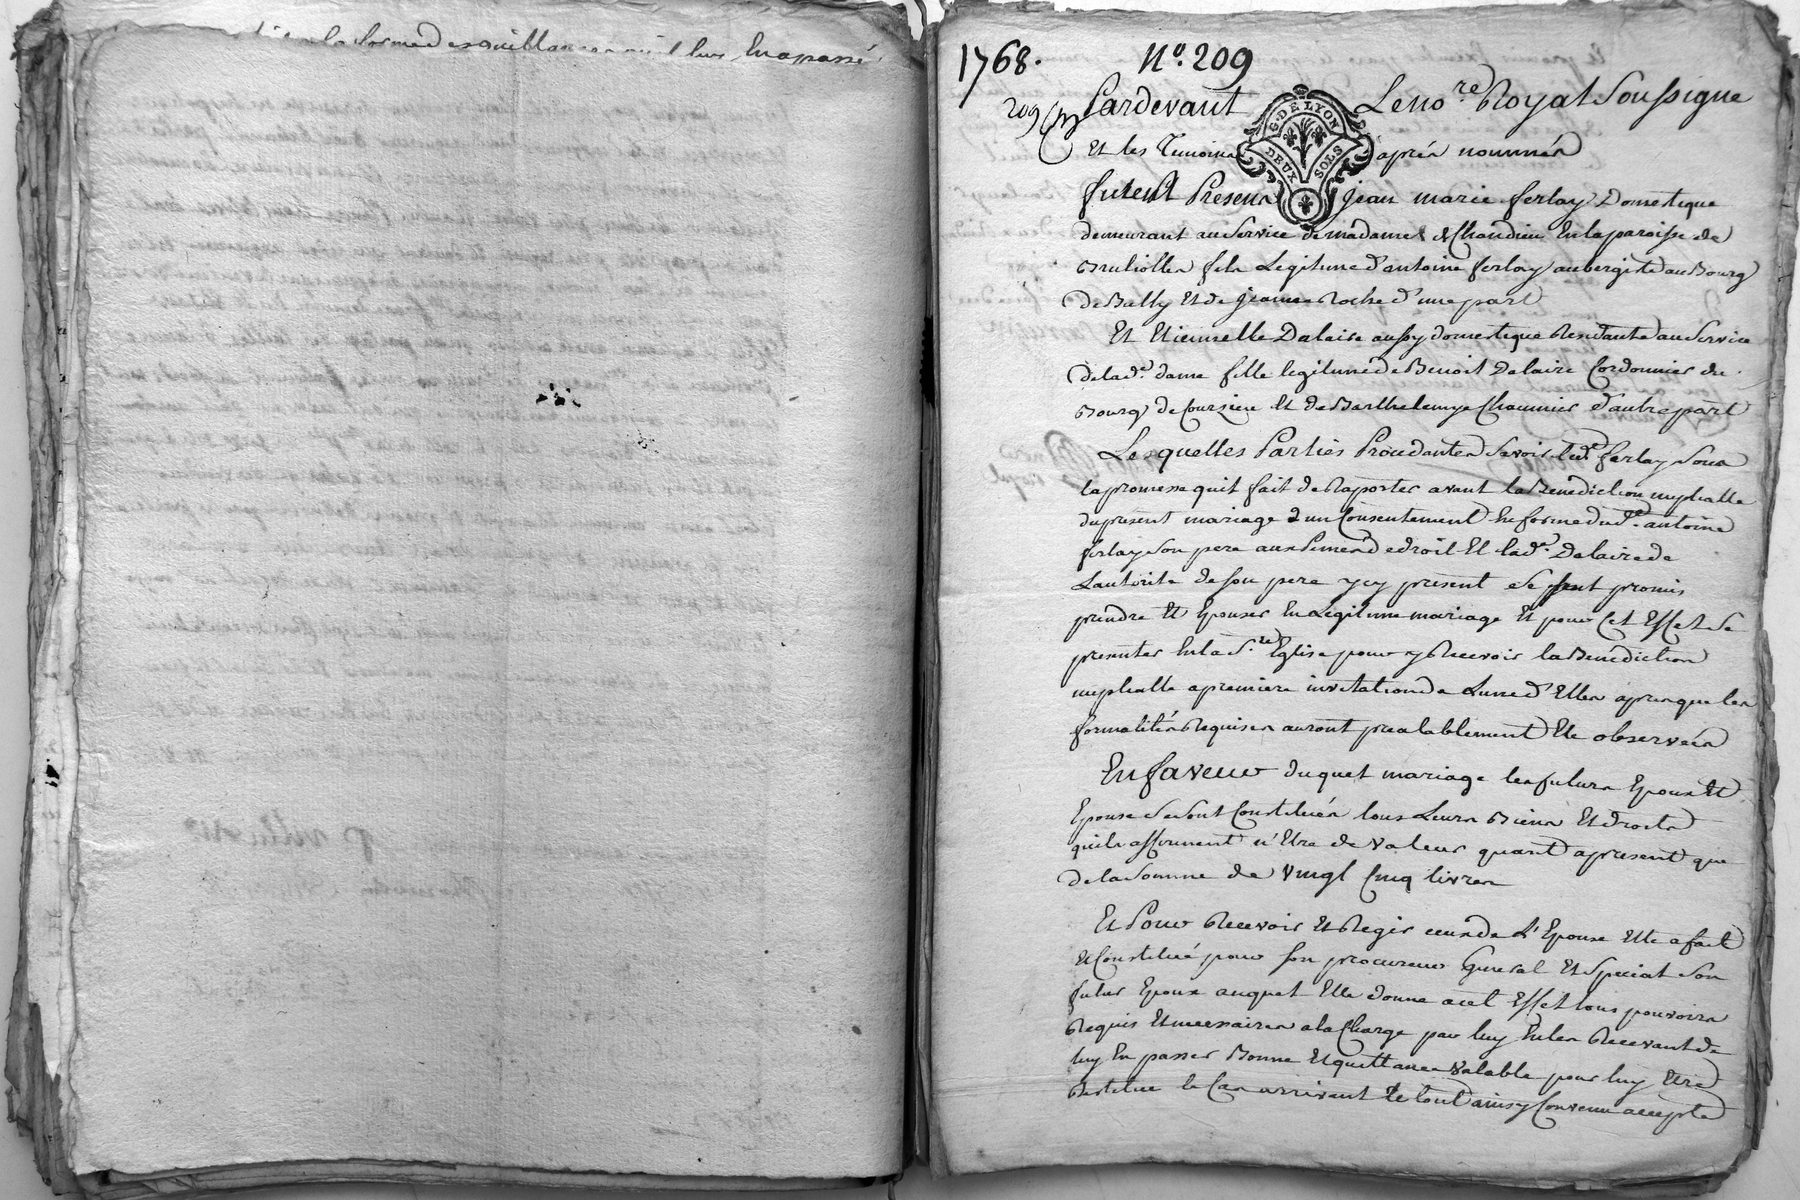 la forme des quittances qu'il leur En a passé
1768. N°. 209
209 Pardevant Le no.re Royal Soussigne
G. DE LYON
DEUX SOLS
Et les Temoins après nommés
furent Presens Jean marie ferlay Domestique
demeurant au Service de madame de Chandieu En la paroisse de
Brulioles fils Legitime d'antoine ferlay aubergiste au Bourg
de Bully Et de Jeanne Roche d'une part
Et Etiennette Dalaire aussy domestique Residante au Service
de lad.e dame fille legitime de Benoit Dalaire Cordonnier du
Bourg de Coursieu Et de Barthelemye Chaunier d'autre part
Lesquelles Parties Procedantes Savoir led.t ferlay Sous
la promesse quil fait de Raporter avant la Benediction nuptialle
du present mariage d'un Consentement En forme dud.t antoine
ferlay Son pere aux Peines de droit Et lad.e Dalaire de
Lautorité de son pere icy present se sont promis
prendre Et Epouser En Legitime mariage Et pour Cet Effet se
presenter En la S.te Eglise pour y Recevoir la Benediction
nuptialle a premiere invitation de L'une d'Elles apres que les
formalités Requises auront prealablement Eté observées
En faveur duquel mariage les futurs Epoux Et
Epouse Se sont Constitués tous Leurs Biens Et droits
quils affirment n'Etre de valeur quant apresent que
de la Somme de vingt Cinq livres
Et Pour Recevoir Et Regir ceux de L'Epouse Elle a fait
Et Constitué pour son procureur General Et Special Son
futur Epoux auquel Elle donne a cet Effet tous pouvoirs
Requis Et necessaires a la Charge par luy En les Recevant de
luy En passer Bonne Et quittance valable pour luy Etre
Restitué le Cas arrivant Le tout ainsy Convenu accepté